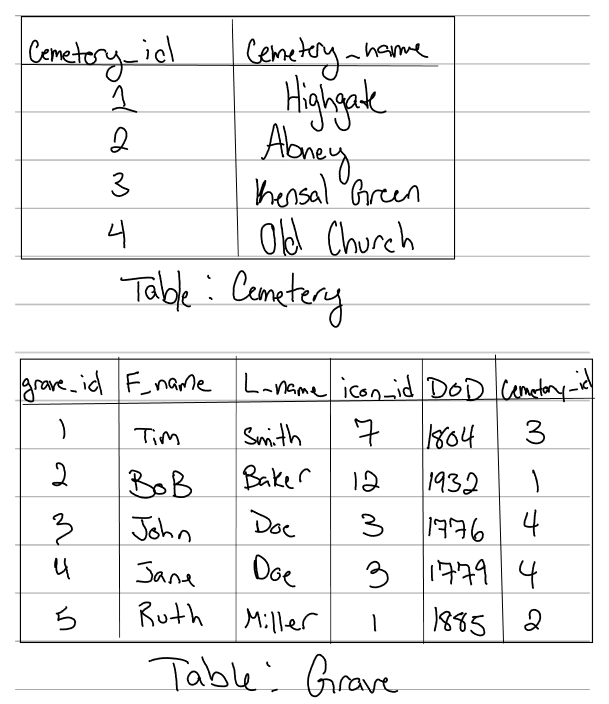 Cemetery_id Cemetery_name
1 Highgate
2 Abney
3 Kensal Green
4 Old Church
Table: Cemetery
grave_id F_name L_name icon_id DOD Cemetery_id
1 Tim Smith 7 1804 3
2 BoB Baker 12 1932 1
3 John Doe 3 1776 4
4 Jane Doe 3 1779 4
5 Ruth Miller 1 1885 2
Table: Grave